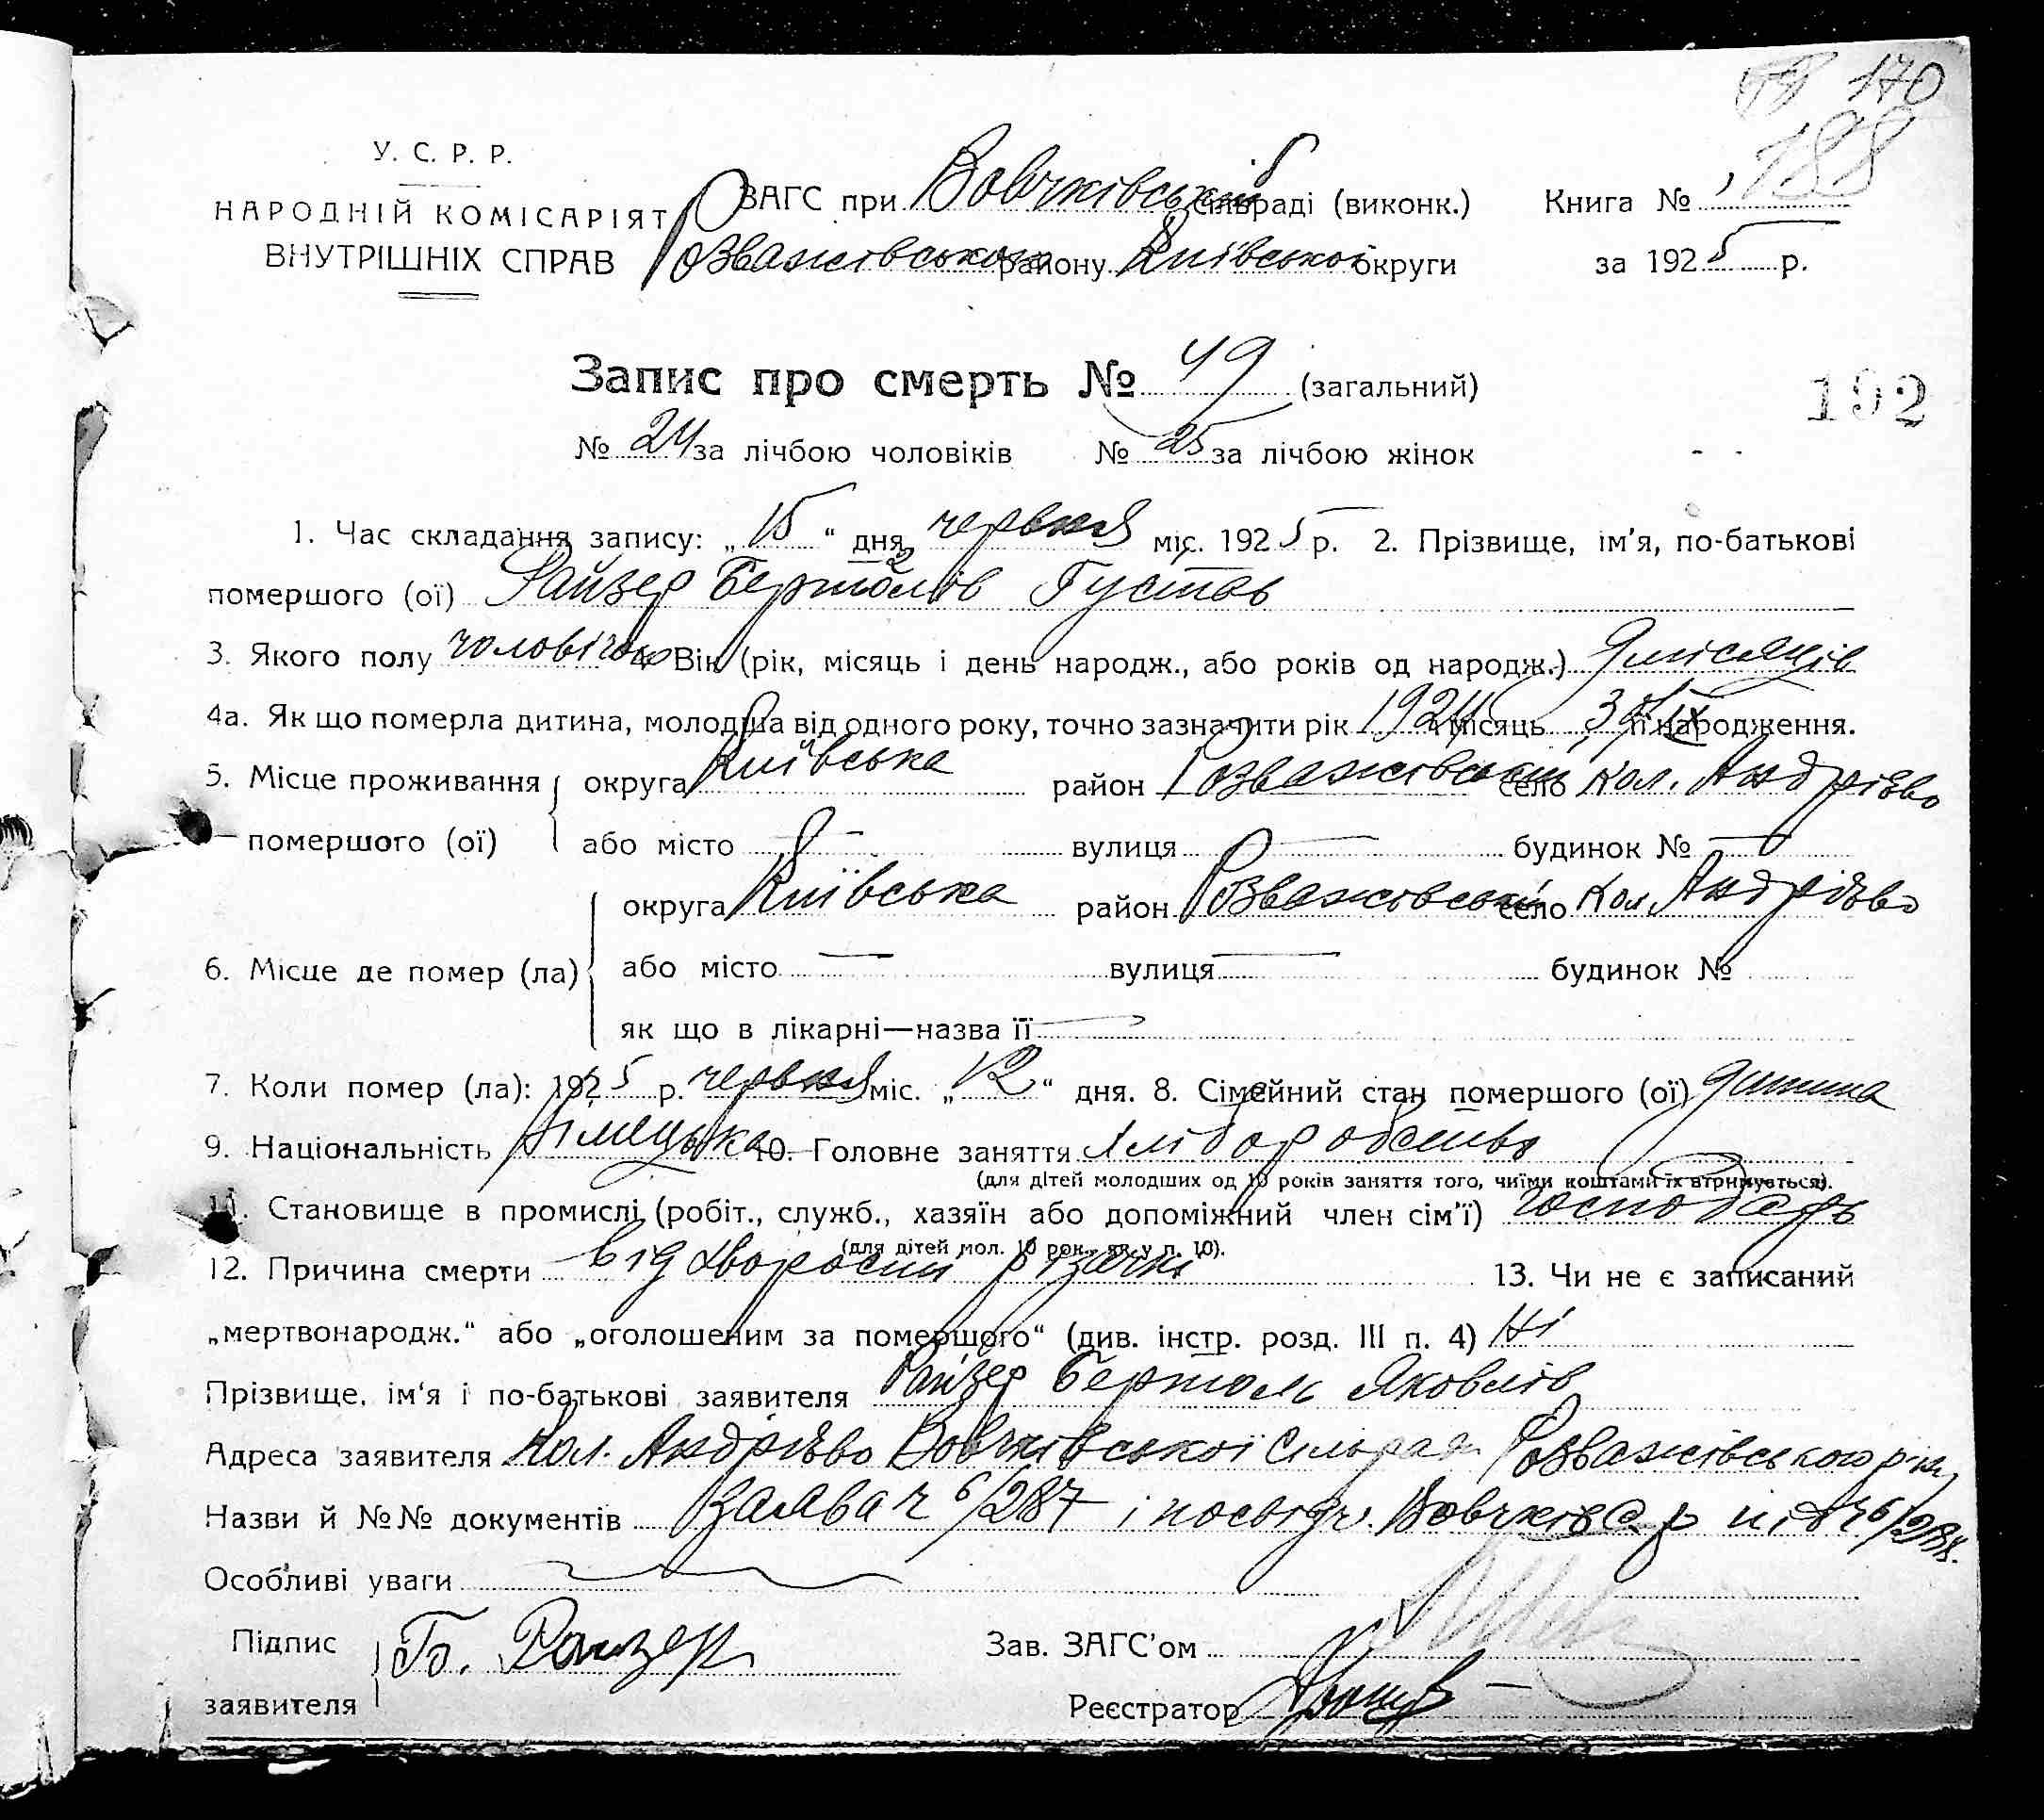 170
188
У. С. Р. Р.
НАРОДНІЙ КОМІСАРІЯТ
ВНУТРІШНІХ СПРАВ
ЗАГС при Вовчківській сільраді (виконк.) Книга №
Розважівського району Київської округи за 1925 р.
Запис про смерть № 49 (загальний)
192
№ 24 за лічбою чоловіків № 25 за лічбою жінок
1. Час складання запису: „15“ дня червня міс. 1925 р. 2. Прізвище, ім'я, по-батькові
помершого (ої) Райзер Бертолів Густав
3. Якого полу чоловічого 4. Вік (рік, місяць і день народж., або років од народж.) 9 місяців
4а. Як що померла дитина, молодша від одного року, точно зазначити рік 1924 місяць її народження.
5. Місце проживання округа Київська район Розважівський село кол. Андрієво
помершого (ої) або місто — вулиця — будинок № —
округа Київська район Розважівський село кол. Андрієво
6. Місце де помер (ла) або місто — вулиця — будинок №
як що в лікарні—назва її —
7. Коли помер (ла): 1925 р. червня міс. „12“ дня. 8. Сімейний стан помершого (ої) дитина
9. Національність німецька 10. Головне заняття хліборобство
(для дітей молодших од 10 років заняття того, чиїми коштами їх втримується).
11. Становище в промислі (робіт., служб., хазяїн або допоміжний член сім'ї) господарь
(для дітей мол. 10 рок., як у п. 10).
12. Причина смерти від хворости різачкі 13. Чи не є записаний
„мертвонародж.“ або „оголошеним за померщого“ (див. інстр. розд. III п. 4) Ні
Прізвище, ім'я і по-батькові заявителя Райзер Бертоль Яковлів
Адреса заявителя Кол. Андрієво Вовчківської Сільради Розважівського р-ну
Назви й №№ документів Заява ч 6/287 і посвідч. Вовчків С. р під ч 6/288.
Особливі уваги
Підпис
заявителя Б. Райзер Зав. ЗАГС'ом
Реєстратор